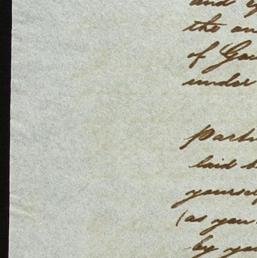 and
the
of
under
parti
laid
yourself
(as you
by you